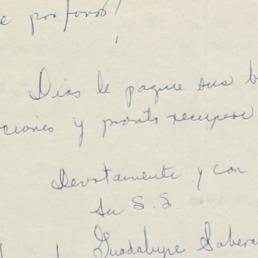 e por favor!
Dios le pague sus b
ciones y pronto recupere
Devotamente y con
Su S. S.
Guadalupe Sabera